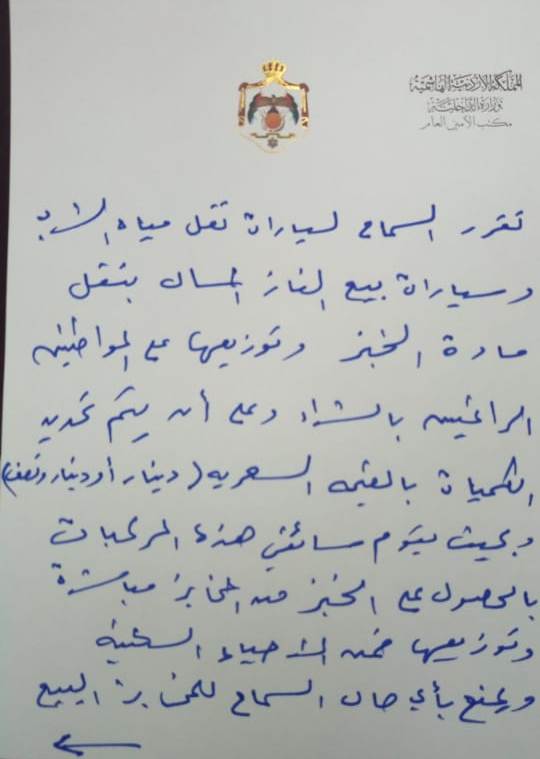 المملكة الأردنية الهاشمية
وزارة الداخلية
مكتب الأمين العام
تقرر السماح لسيارات نقل مياه الشرب
وسيارات بيع الغاز المسال بنقل
مادة الخبز وتوزيعها على المواطنين
الراغبين بالشراء وعلى أن يتم تحديد
الكميات بالقيمة السعرية (دينار أو دينار ونصف)
وبحيث يقوم سائقي هذه المركبات
بالحصول على الخبز من المخابز مباشرة
وتوزيعها ضمن الاحياء السكنية
ويمنع بأي حال السماح للمخابز البيع